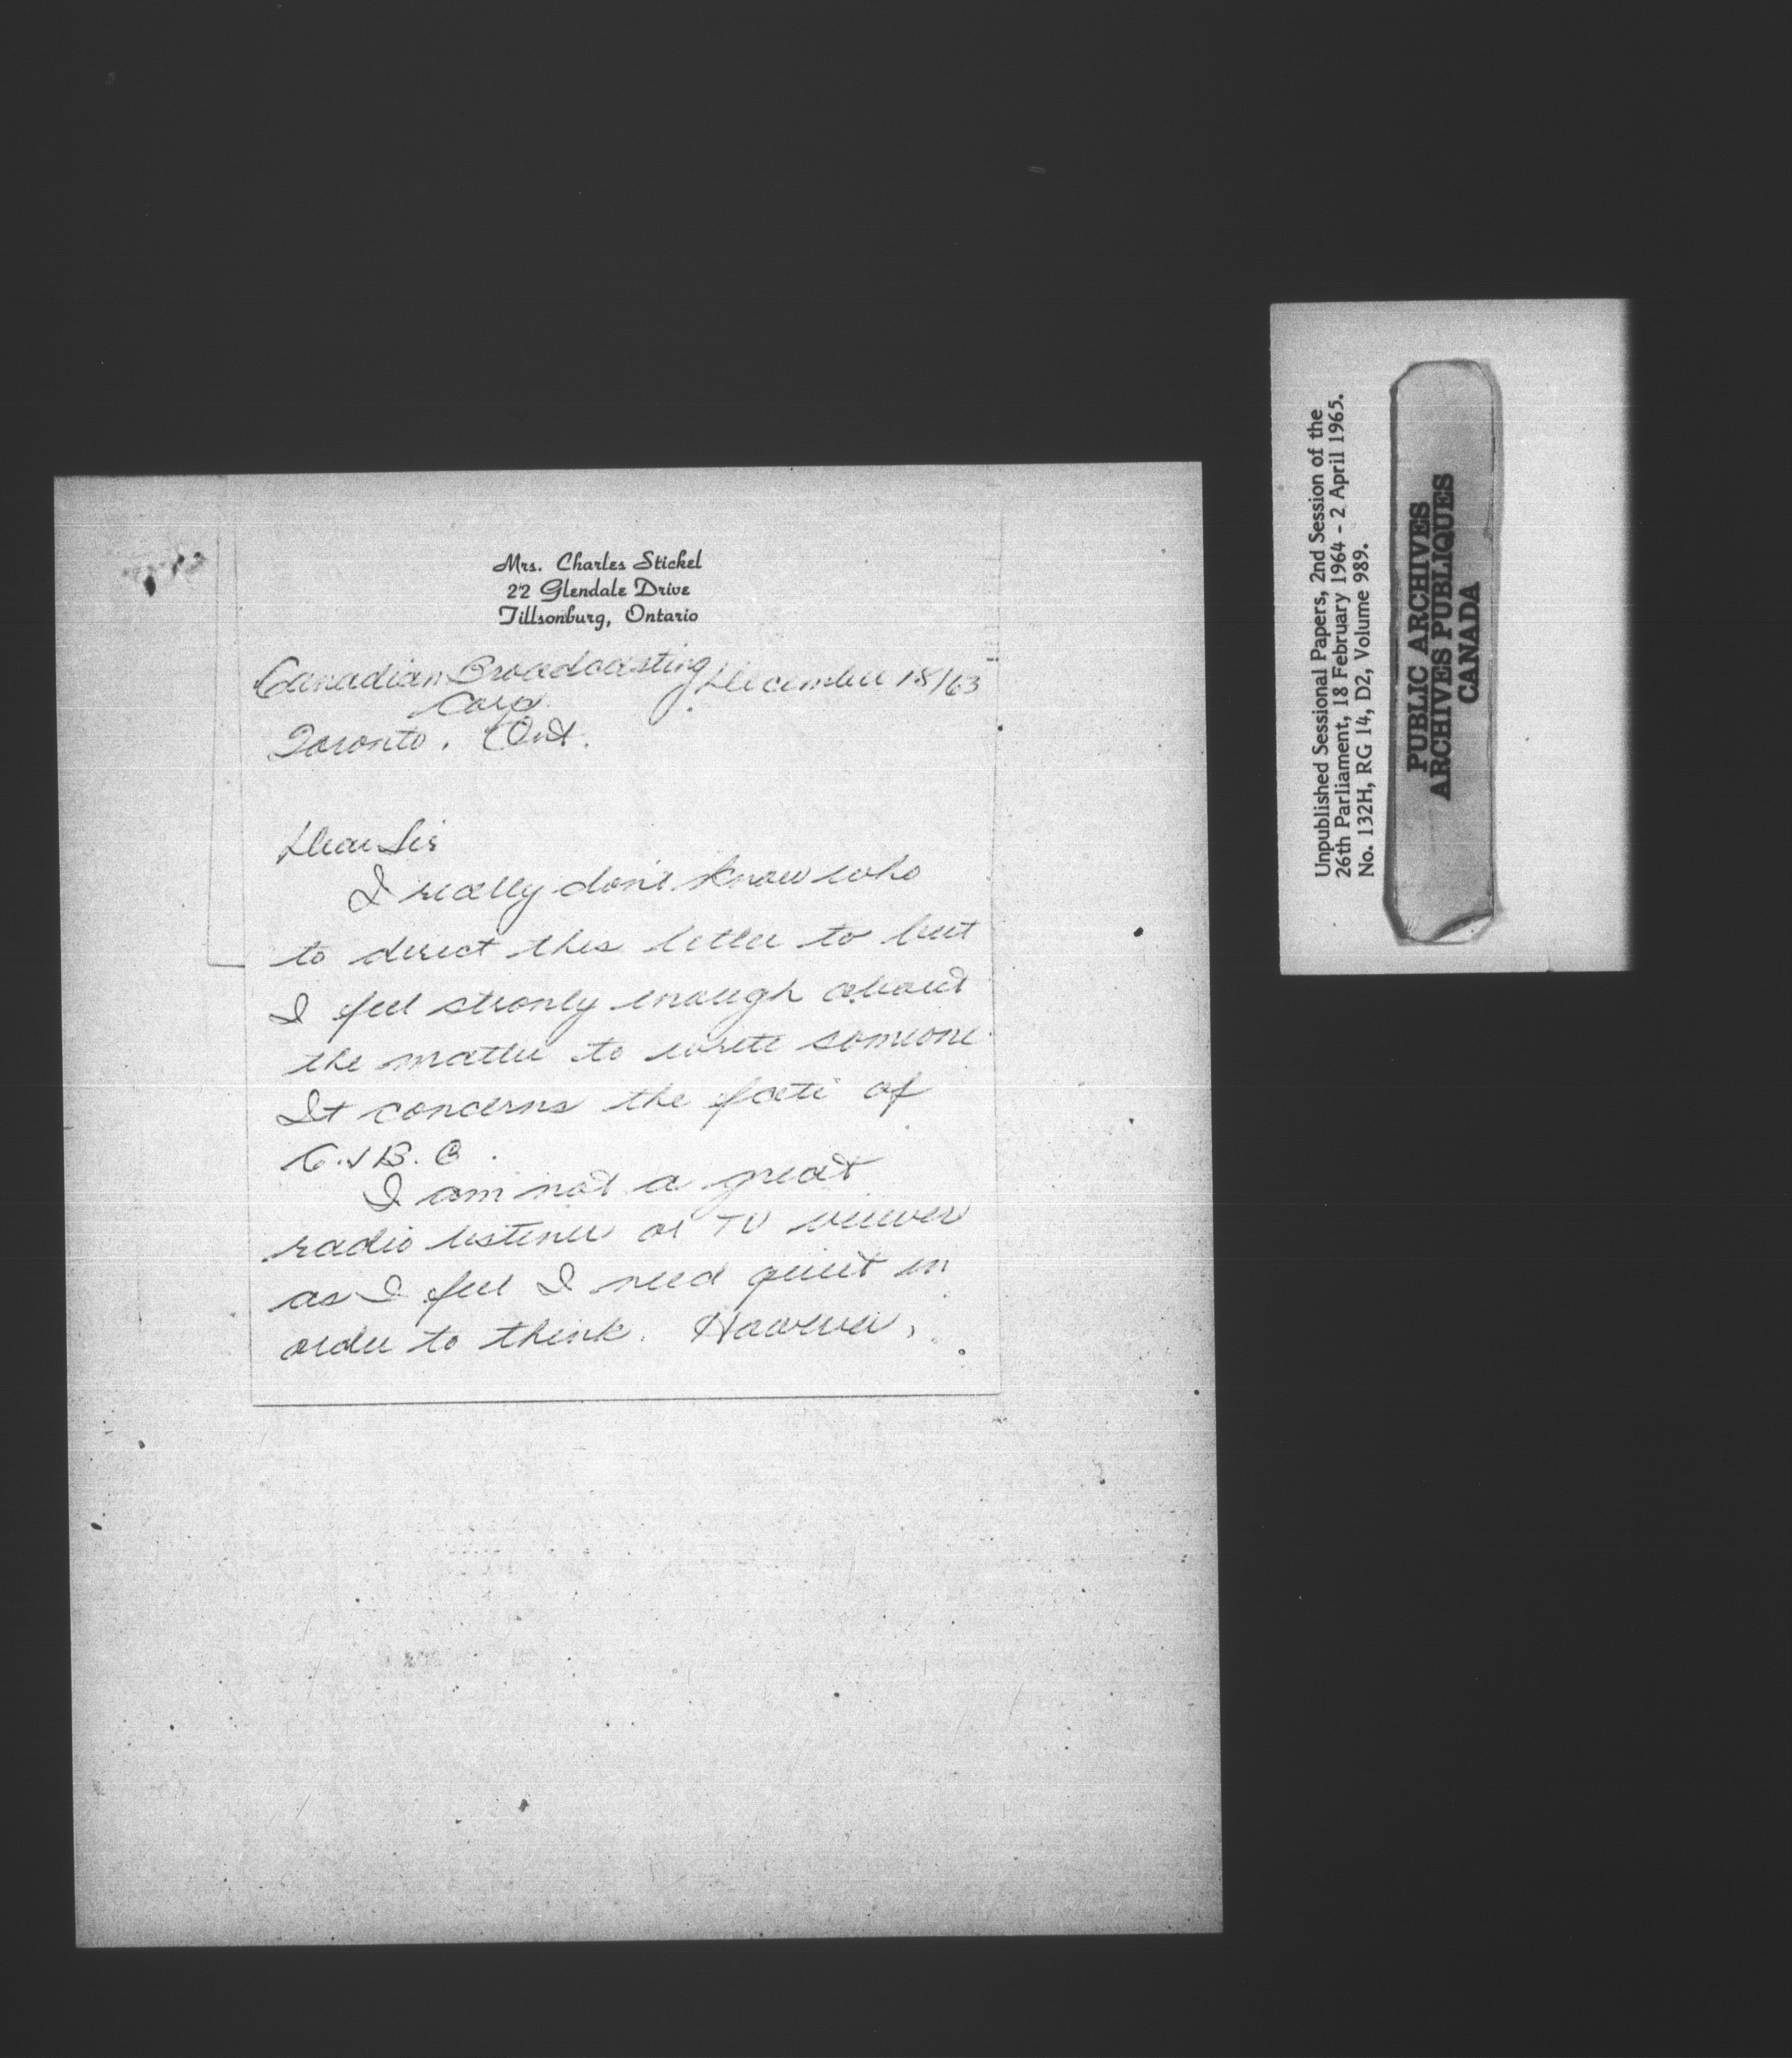 Mrs. Charles Stickel
22 Glendale Drive
Tillsonburg, Ontario
Canadian Broadcasting December 18/63
Corp.
Toronto. Ont.
Dear Sir
I really don't know who
to direct this letter to but
I feel stronly enough about
the matter to write someone
It concerns the fate of
C.J.B.C.
I am not a great
radio listener or TV viewer
as I feel I need quiet in
order to think. However,
Unpublished Sessional Papers, 2nd Session of the
26th Parliament, 18 February 1964 - 2 April 1965.
No. 132H, RG 14, D2, Volume 989.
PUBLIC ARCHIVES
ARCHIVES PUBLIQUES
CANADA